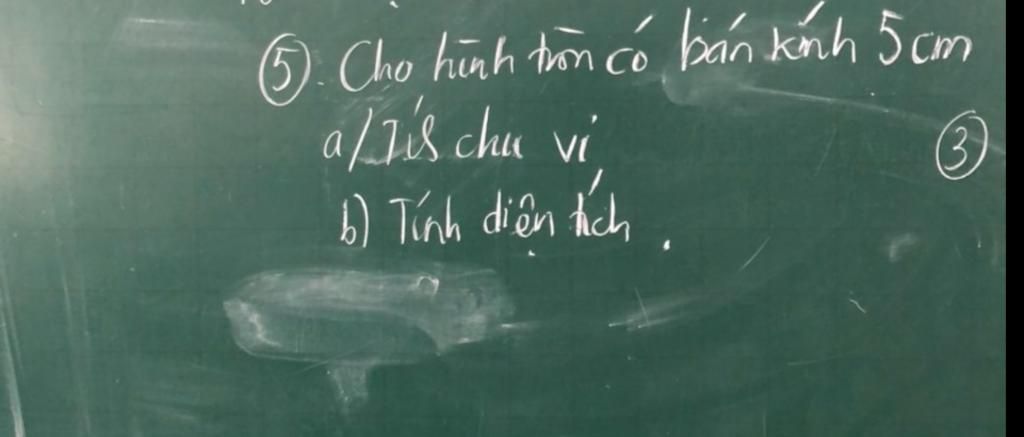 ⑤. Cho hình tròn có bán kính 5 cm
a/ chu vi
③
b) Tính diện tích.